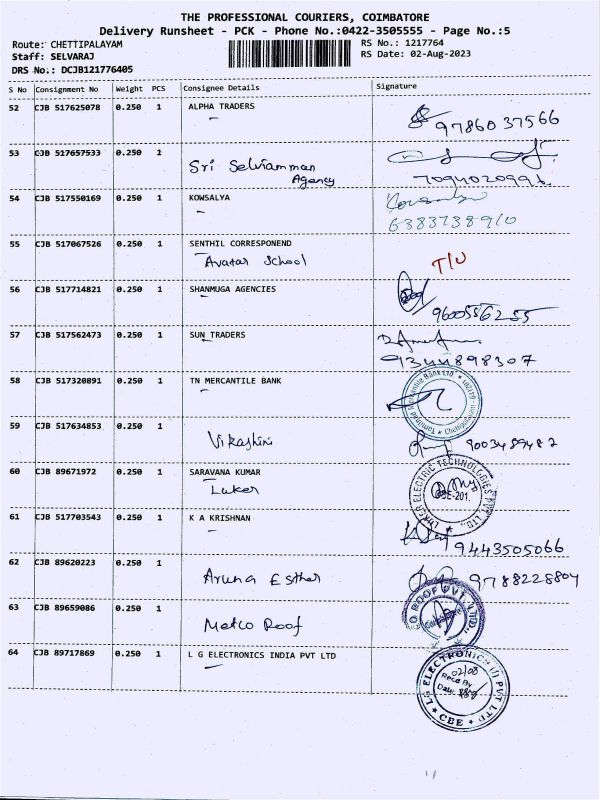 THE PROFESSIONAL COURIERS, COIMBATORE
Delivery Runsheet - PCK - Phone No.:0422-3505555 - Page No.:5
Route: CHETTIPALAYAM
RS No.: 1217764
Staff: SELVARAJ
RS Date: 02-Aug-2023
DRS No.: DCJB121776405
S No Consignment No Weight PCS Consignee Details Signature
52 CJB 517625078 0.250 1 ALPHA TRADERS
9786037566
53 CJB 517657533 0.250 1
Sri Selviamman
Agency
7094020996
54 CJB 517550169 0.250 1 KOWSALYA
6383738910
55 CJB 517067526 0.250 1 SENTHIL CORRESPONEND
Avatar School
T/U
56 CJB 517714821 0.250 1 SHANMUGA AGENCIES
9600556255
57 CJB 517562473 0.250 1 SUN TRADERS
9344898307
58 CJB 517320891 0.250 1 TN MERCANTILE BANK
59 CJB 517634853 0.250 1
Vikashini
9003489482
60 CJB 89671972 0.250 1 SARAVANA KUMAR
Luker
LUKER ELECTRIC TECHNOLOGIES PVT. LTD.
61 CJB 517703543 0.250 1 K A KRISHNAN
9443505066
62 CJB 89620223 0.250 1
Aruna Esther
9788228804
63 CJB 89659086 0.250 1
Metco Roof
ROOF PVT. LTD.
64 CJB 89717869 0.250 1 L G ELECTRONICS INDIA PVT LTD
LG ELECTRONICS (I) PVT LTD
02/08
Recd By
Date
CBE